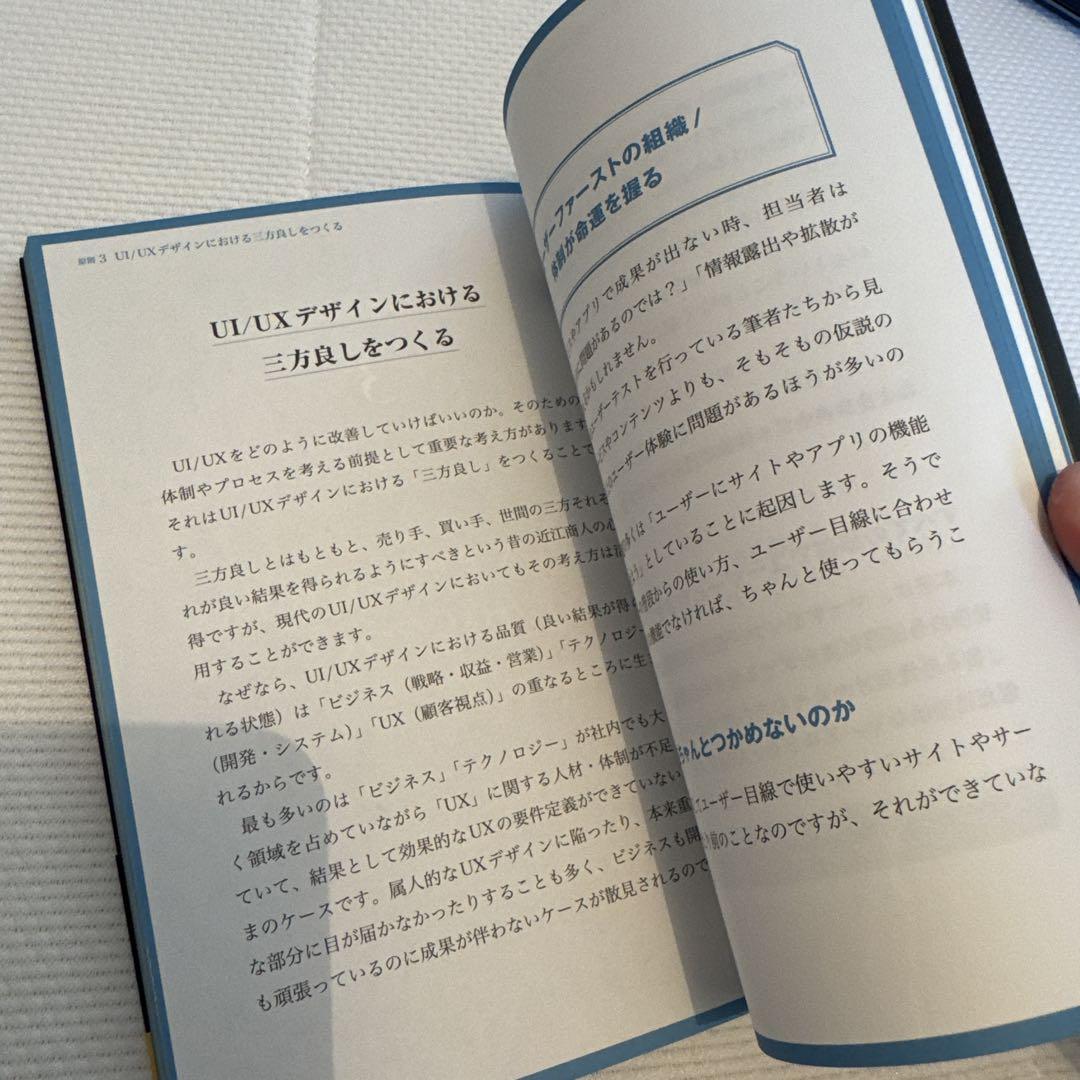 原則3 UI/UXデザインにおける三方良しをつくる
UI/UXデザインにおける
三方良しをつくる
UI/UXをどのように改善していけばいいのか。そのための
体制やプロセスを考える前提として重要な考え方があります
それはUI/UXデザインにおける「三方良し」をつくることで
す。
三方良しとはもともと、売り手、買い手、世間の三方それぞ
れが良い結果を得られるようにすべきという昔の近江商人の心
得ですが、現代のUI/UXデザインにおいてもその考え方は
用することができます。
なぜなら、UI/UXデザインにおける品質（良い結果が得ら
れる状態）は「ビジネス（戦略・収益・営業）」「テクノロジー
（開発・システム）」「UX（顧客視点）」の重なるところに生
れるからです。
最も多いのは「ビジネス」「テクノロジー」が社内でも大
く領域を占めていながら「UX」に関する人材・体制が不足
ていて、結果として効果的なUXの要件定義ができていない
まのケースです。属人的なUXデザインに陥ったり、本来重
な部分に目が届かなかったりすることも多く、ビジネスも開
も頑張っているのに成果が伴わないケースが散見されるので
ーザーファーストの組織/
体制が命運を握る
やアプリで成果が出ない時、担当者は
問題があるのでは？」「情報露出や拡散が
かもしれません。
ユーザーテストを行っている筆者たちから見
やコンテンツよりも、そもそもの仮説の
のユーザー体験に問題があるほうが多いの
くは「ユーザーにサイトやアプリの機能
う」としていることに起因します。そうで
普段からの使い方、ユーザー目線に合わせ
機能でなければ、ちゃんと使ってもらうこ
ちゃんとつかめないのか
ユーザー目線で使いやすいサイトやサー
前のことなのですが、それができていな